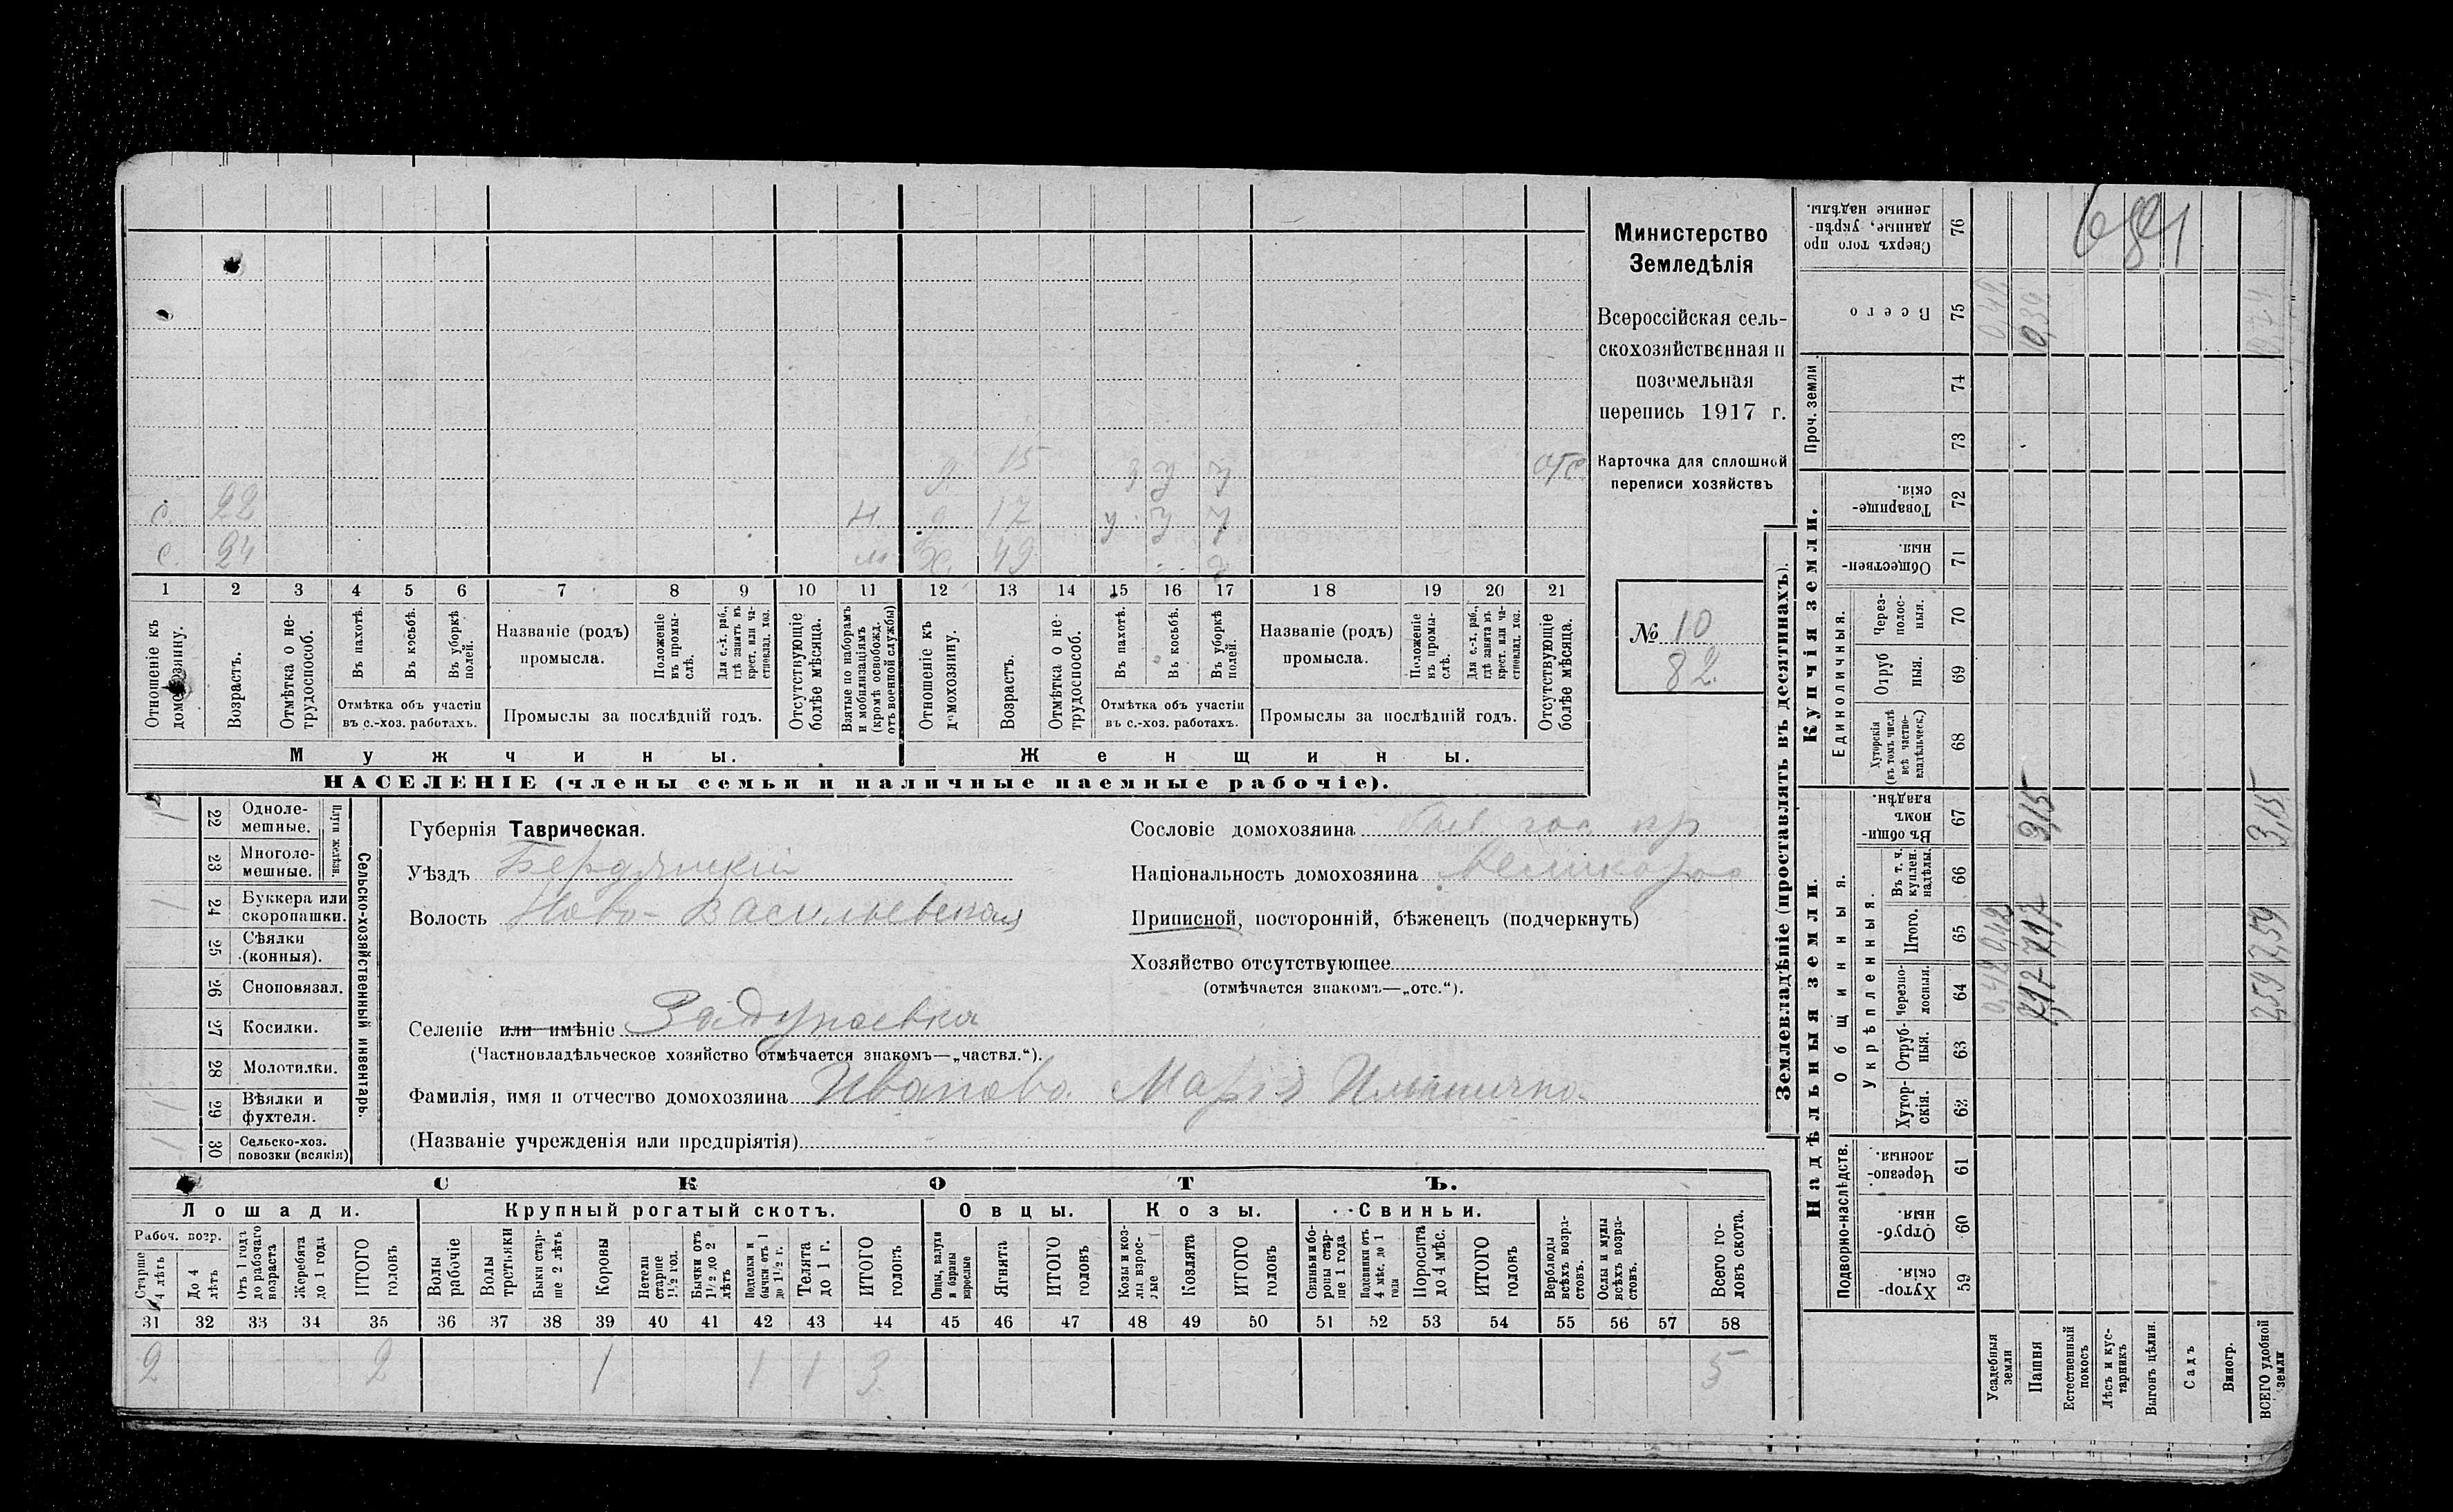 Министерство
Земледѣлія
Всероссійская сель-
скохозяйственная и
поземельная
перепись 1917 г.
Карточка для сплошной
переписи хозяйствъ
№ 10
82.
д. 15 У У У отс.
с. 22 д. 17 У У У
с. 24 м Х. 49 У
1 2 3 4 5 6 7 8 9 10 11 12 13 14 15 16 17 18 19 20 21
Отношеніе къ домохозяину.
Возрастъ.
Отмѣтка о не-трудоспособ.
Въ пахотѣ.
Въ косьбѣ.
Въ уборкѣ полей.
Отмѣтка объ участіи
въ с.-хоз. работахъ.
Названіе (родъ)
промысла.
Положеніе въ промы-слѣ.
Для с.-х. раб., гдѣ занятъ въ крест. или ча-стновлад. хоз.
Промыслы за послѣдній годъ.
Отсутствующіе болѣе мѣсяца.
Взятые по наборамъ и мобилизаціямъ (кромѣ освобожд. отъ военной службы)
Отношеніе къ домохозяину.
Возрастъ.
Отмѣтка о не-трудоспособ.
Въ пахотѣ.
Въ косьбѣ.
Въ уборкѣ полей.
Отмѣтка объ участіи
въ с.-хоз. работахъ.
Названіе (родъ)
промысла.
Положеніе въ промы-слѣ.
Для с.-х. раб., гдѣ занята въ крест. или ча-стновлад. хоз.
Промыслы за послѣдній годъ.
Отсутствующіе болѣе мѣсяца.
Мужчины. Женщины.
НАСЕЛЕНІЕ (члены семьи и наличные наемные рабочіе).
Сельско-хозяйственный инвентарь.
Плуги желѣзн.
22 Одноле-мешные. 1
23 Многоле-мешные.
24 Буккера или скоропашки. 1
25 Сѣялки (конныя).
26 Сноповязал.
27 Косилки.
28 Молотилки.
29 Вѣялки и фухтеля. 1
30 Сельско-хоз. повозки (всякія) 1
Губернія Таврическая.
Уѣздъ Бердянскій
Волость Ново-Васильевская
Селеніе или имѣніе Задунаевка
(Частновладѣльческое хозяйство отмѣчается знакомъ—„частвл.“).
Фамилія, имя и отчество домохозяина Иванова Марія Ильинична
(Названіе учрежденія или предпріятія)
Сословіе домохозяина кр
Національность домохозяина Великорос
Приписной, посторонній, бѣженецъ (подчеркнуть)
Хозяйство отсутствующее
(отмѣчается знакомъ—„отс.“).
СКОТЪ.
Лошади. Крупный рогатый скотъ. Овцы. Козы. Свиньи.
Рабоч. возр.
Старше 4 лѣтъ
До 4 лѣтъ
Отъ 1 года до рабочаго возраста
Жеребята до 1 года
ИТОГО головъ
Волы рабочіе
Волы третьяки
Быки стар-ше 2 лѣтъ
Коровы
Нетели старше 1½ год.
Бычки отъ 1½ до 2 лѣтъ
Подтелки и бычки отъ 1 до 1½ г.
Телята до 1 г.
ИТОГО головъ
Овцы, валухи и бараны взрослые
Ягнята
ИТОГО головъ
Козы и коз-лы взрос-лые
Козлята
ИТОГО головъ
Свиньи и бо-ровы стар-ше 1 года
Подсвинки отъ 4 мѣс. до 1 года
Поросята до 4 мѣс.
ИТОГО головъ
Верблюды всѣхъ возра-стовъ.
Ослы и мулы всѣхъ возра-стовъ.
Всего го-ловъ скота.
31 32 33 34 35 36 37 38 39 40 41 42 43 44 45 46 47 48 49 50 51 52 53 54 55 56 57 58
2 2 1 1 1 3 5
Землевладѣніе (проставлять въ десятинахъ).
Надѣльныя земли. Купчія земли.
Проч. земли
Общинныя.
Укрѣпленныя.
Единоличныя.
Подворно-наслѣдств.
Сверхъ того про-данные, укрѣп-ленные надѣлы. 76
Всего 75
74
73
Товарище-скія. 72
Обществен-ныя. 71
Через-полос-ныя. 70
Отруб-ныя. 69
Хуторскія (въ томъ числѣ всѣ частно-владѣльческ.) 68
Въ общи-номъ владѣн. 67
Въ т. ч. куплен. надѣлы. 66
Итого. 65
Черезпо-лосныя. 64
Отруб-ныя. 63
Хутор-скія. 62
Черезпо-лосныя. 61
Отруб-ныя. 60
Хутор-скія. 59
Усадебныя земли
Пашня
Естественный покосъ
Лѣсъ и кус-тарникъ
Выгонъ цѣлин.
Садъ
Виногр.
ВСЕГО удобной земли
3,15 3,15